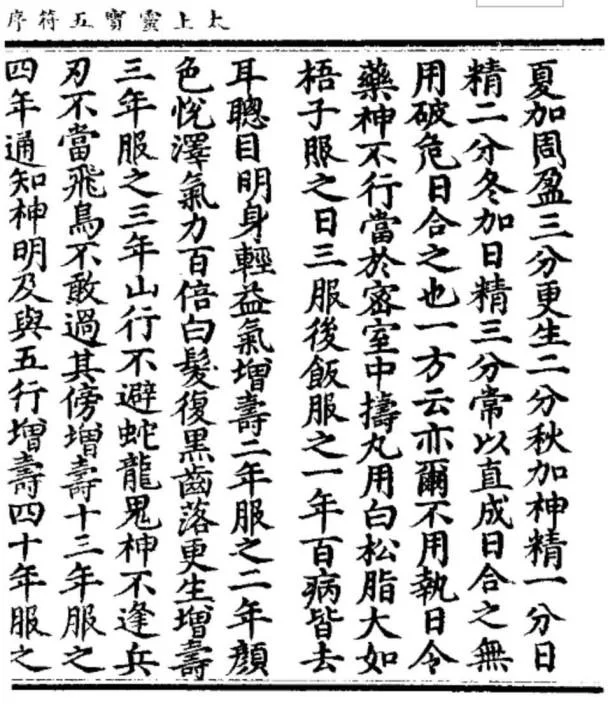 太上靈寶五符序
夏加周盈三分更生二分秋加神精一分日
精二分冬加日精三分常以直成日合之無
用破危日合之也一方云亦爾不用執日令
藥神不行當於密室中擣丸用白松脂大如
梧子服之日三服後飯服之一年百病皆去
耳聰目明身輕益氣增壽二年服之二年顏
色悅澤氣力百倍白髮復黑齒落更生增壽
三年服之三年山行不避蛇龍鬼神不逢兵
刃不當飛鳥不敢過其傍增壽十三年服之
四年通知神明及與五行增壽四十年服之